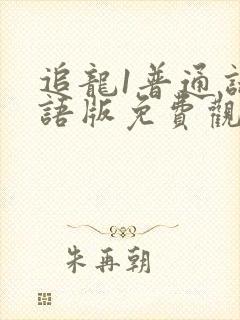 追龍1普通話
語版免費觀
朱再朝